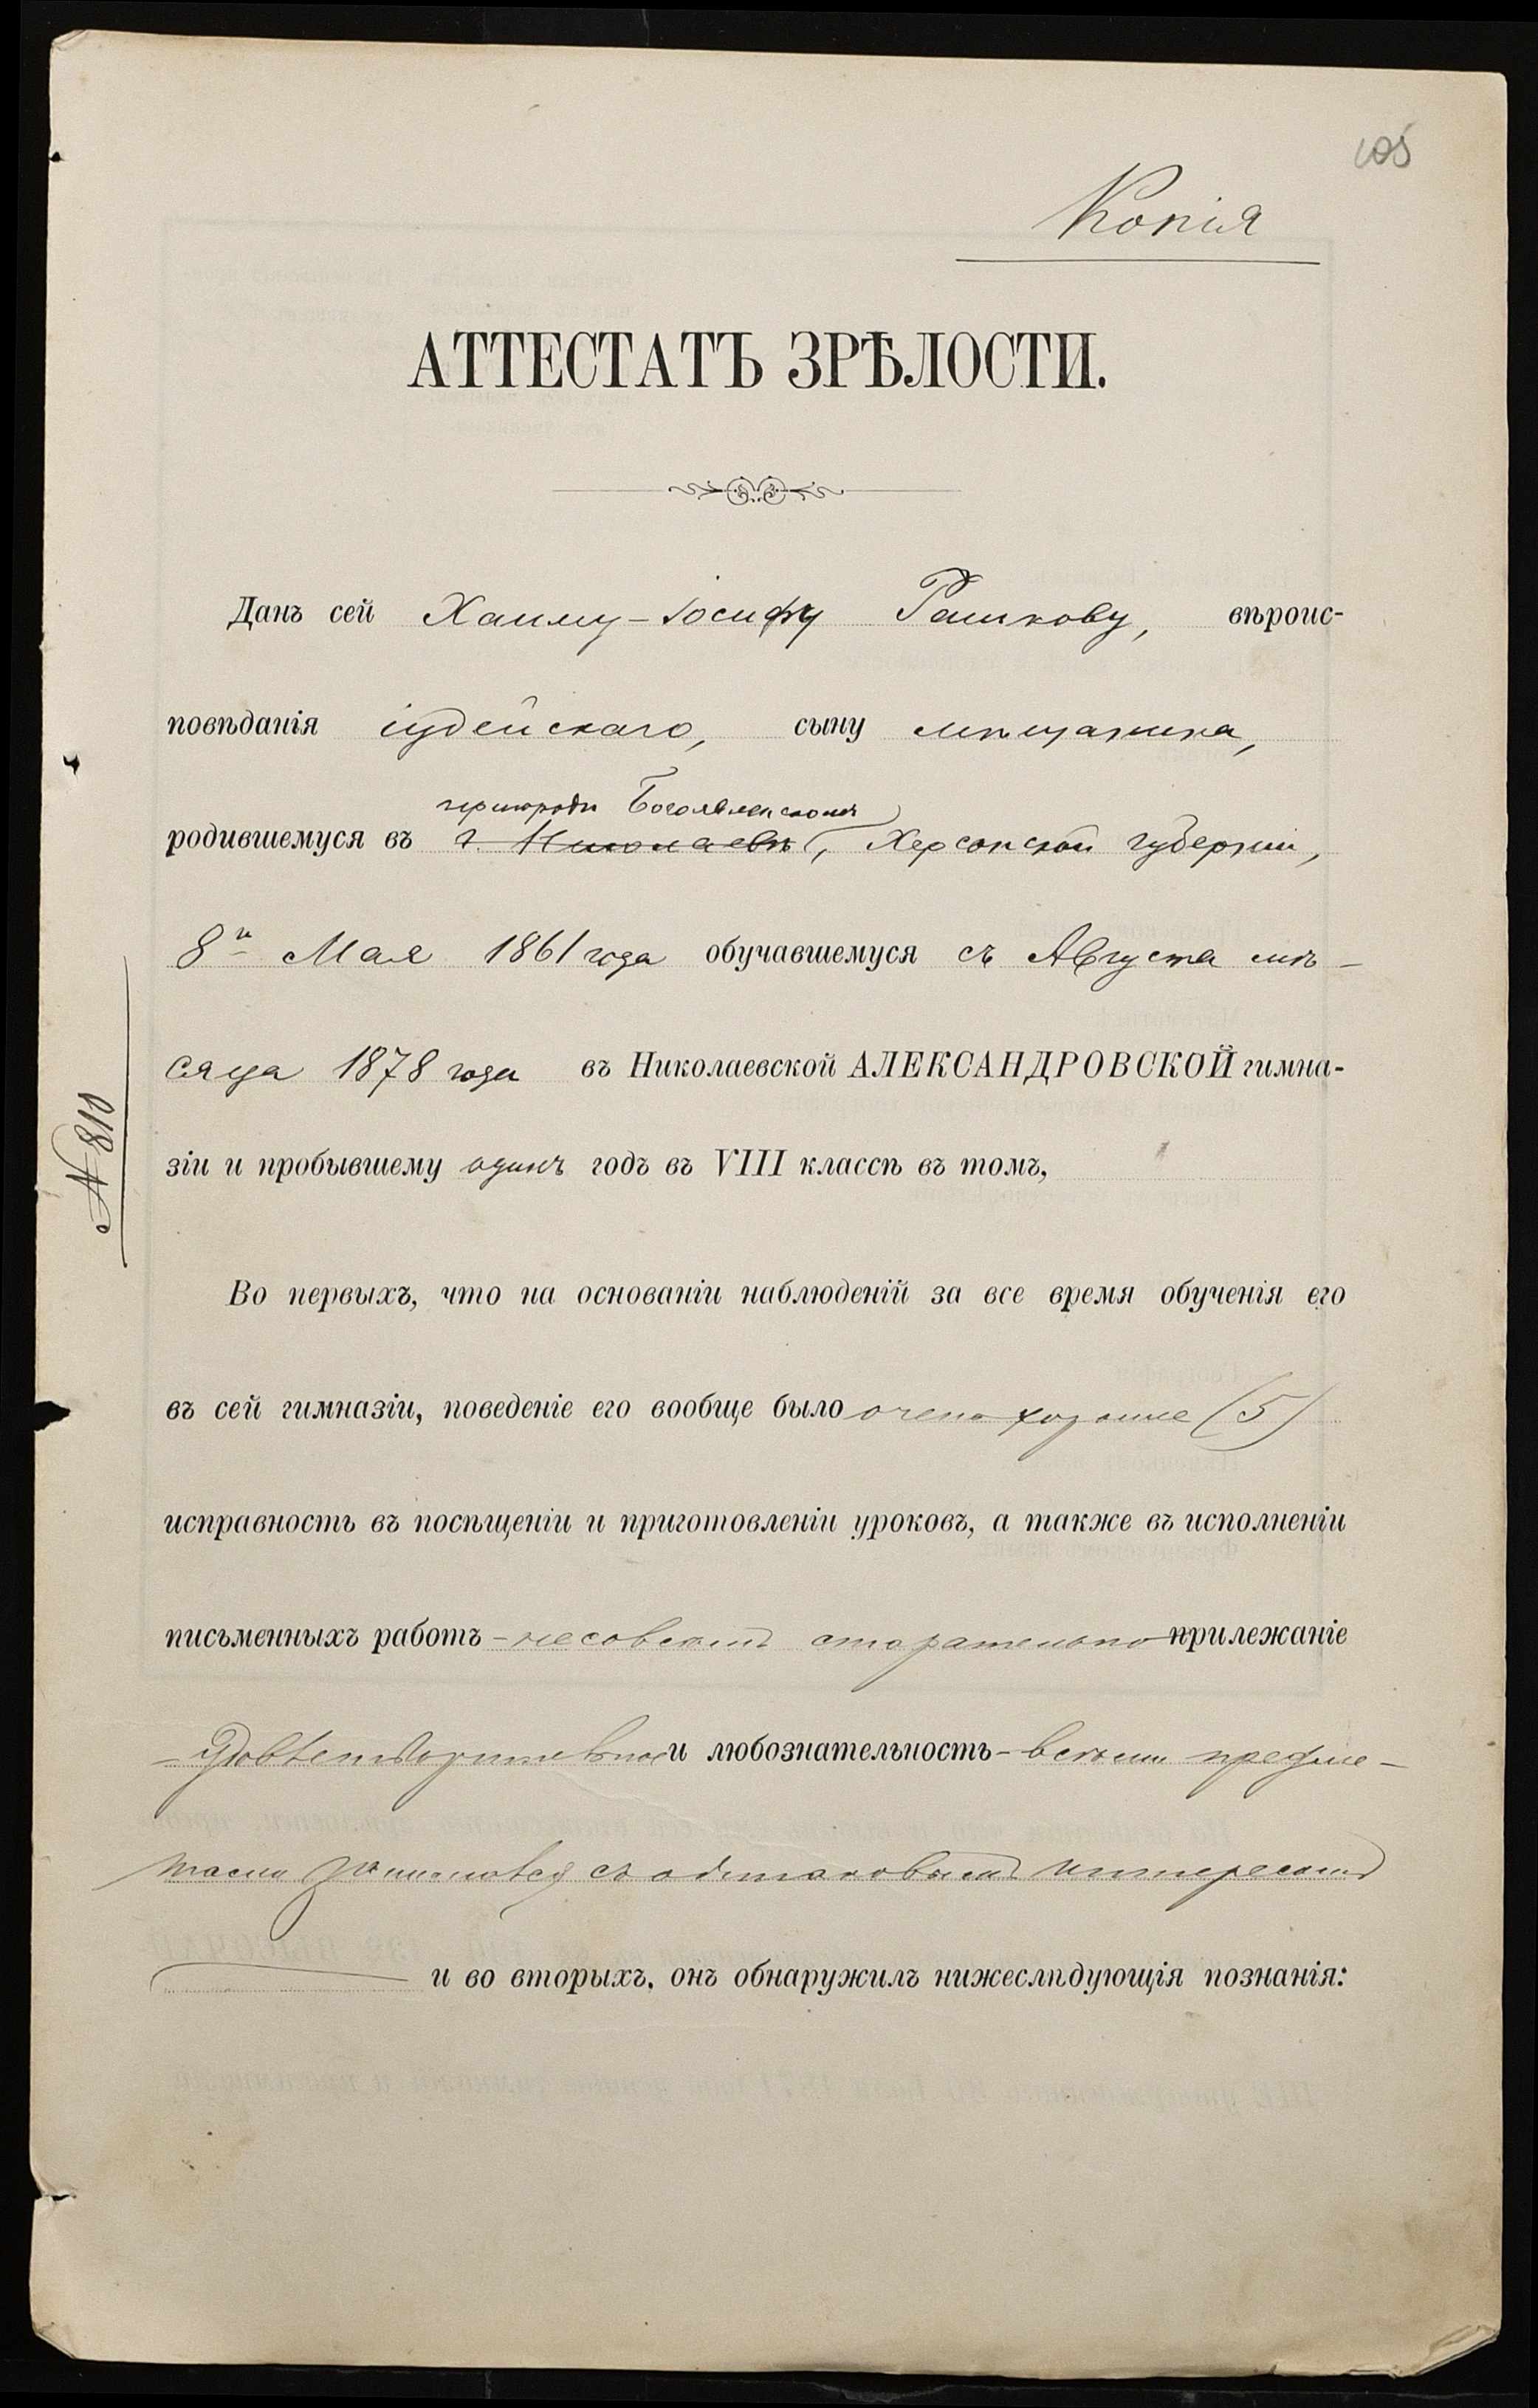 105
Копія
АТТЕСТАТЪ ЗРѢЛОСТИ.
Данъ сей Хаиму-Іосифу Рашкову, вѣроис-
повѣданія іудейскаго, сыну мѣщанина,
пригородѣ Богоявленскомъ
родившемуся въ г. Николаевѣ, Херсонской губерніи,
8го Мая 1861 года обучавшемуся съ Августа мѣ-
сяца 1878 года въ Николаевской АЛЕКСАНДРОВСКОЙ гимна-
зіи и пробывшему одинъ годъ въ VIII классѣ въ томъ,
№ 810
Во первыхъ, что на основаніи наблюденій за все время обученія его
въ сей гимназіи, поведеніе его вообще было очень хорошее (5)
исправность въ посѣщеніи и приготовленіи уроковъ, а также въ исполненіи
письменныхъ работъ - несовсемъ старательно прилежаніе
- удовлетворительное и любознательность - всѣми предме-
тами занимался съ одинаковымъ интересомъ
и во вторыхъ, онъ обнаружилъ нижеслѣдующія познанія: